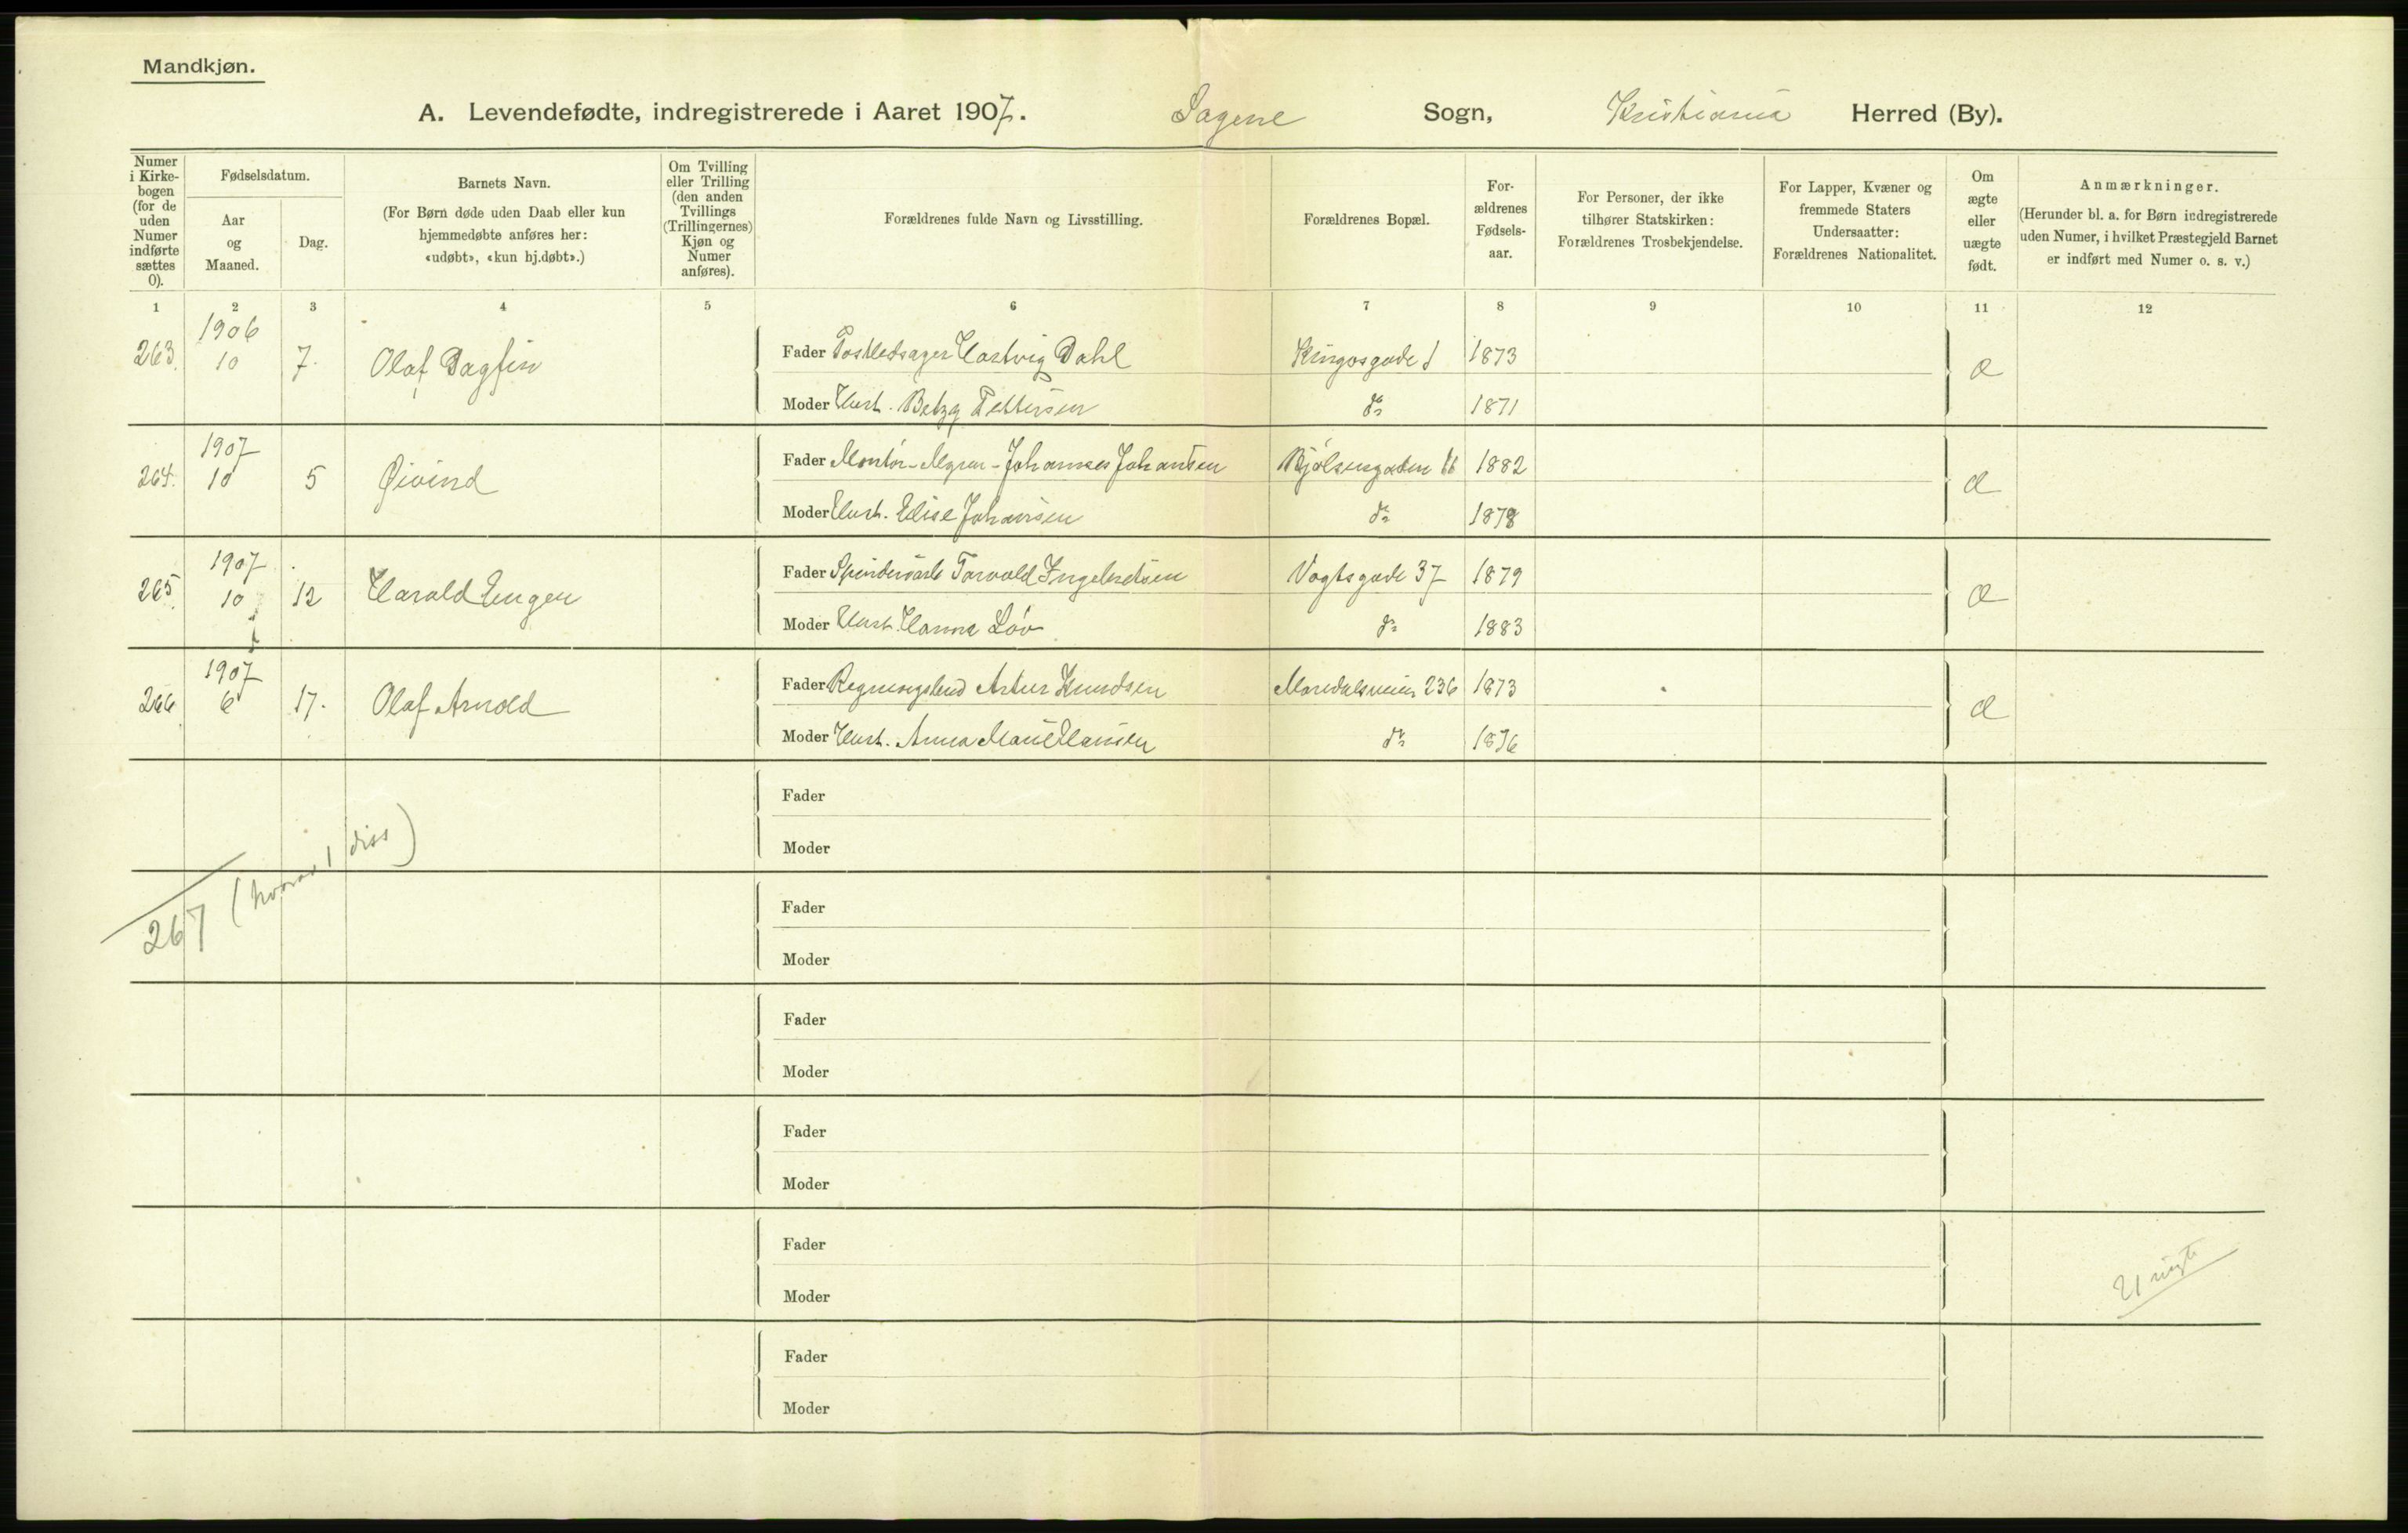 Mandkjøn.
A. Levendefødte, indregistrerede i Aaret 1907. Sagene Sogn, Kristiania Herred (By).
Numer i Kirkebogen (for de uden Numer indførte sættes 0).
Fødselsdatum.
Aar og Maaned.
Dag.
Barnets Navn.
(For Børn døde uden Daab eller kun hjemmedøbte anføres her: «udøbt», «kun hj.døbt».)
Om Tvilling eller Trilling (den anden Tvillings (Trillingernes) Kjøn og Numer anføres).
Forældrenes fulde Navn og Livsstilling.
Forældrenes Bopæl.
Forældrenes Fødselsaar.
For Personer, der ikke tilhører Statskirken: Forældrenes Trosbekjendelse.
For Lapper, Kvæner og fremmede Staters Undersaatter: Forældrenes Nationalitet.
Om ægte eller uægte født.
Anmærkninger.
(Herunder bl. a. for Børn indregistrerede uden Numer, i hvilket Præstegjeld Barnet er indført med Numer o. s. v.)
1 2 3 4 5 6 7 8 9 10 11 12
263. 1906 10 7. Olaf Dagfin
Fader Postledsager Hartvig Dahl Kingosgade 1 1873 æ
Moder Hust. Betzy Pettersen do 1871
264. 1907 10 5 Øivind
Fader Montör Johannes Johansen Bjølsengaden 1882 æ
Moder Hust. Elise Johansen do 1878
265. 1907 10 12 Harald Eugen
Fader Torvald Ingebretsen Vogtsgade 37 1879 æ
Moder Hust. Hanna Löv do 1883
266. 1907 6 17. Olaf Arnold
Fader Artur Knudsen Maridalsveien 236 1873 æ
Moder Hust. Anna Marie Hansen do 1876
Fader
Moder
267 (hvorav 1 diss)
Fader
Moder
Fader
Moder
Fader
Moder
Fader
Moder
21 uægte
Fader
Moder